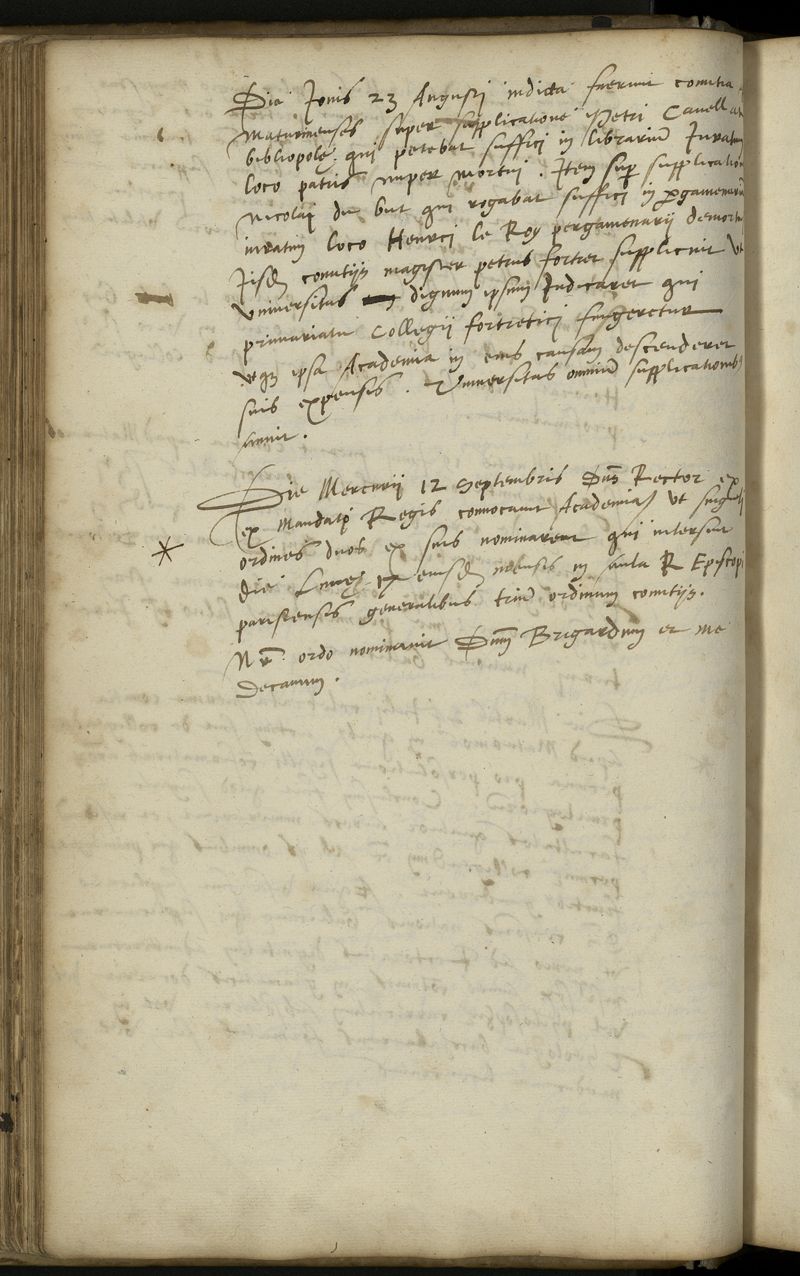 Die Jovis 23 Augusti indicta fuerunt comitia
Maturinensia super supplicatione Petri Cavellat
bibliopolę qui petebat suffici in librariũ Juratum
loco patris nuper mortui. Item sup supplicatione
Nicolai du but qui rogabat suffici in pgamenariũ
iuratum loco Henrici le Roy pergamenarii demortui
Jisdẽ comitijs magister petrus fortet supplicuit ut
Universitas dignum ipsum Judicaret qui
primariatu Collegii fortetici fungeretur
utq ipsa Academia in eius causam descenderet
suis expensis. Universitas omniũ supplicationibus
annuit.
Die Mercurij 12 Septembris Dñs Rector ex
ex Mandato Regis convocavit Academiã ut singuli
ordines duos ex suis nominarent qui intersint
die Lunę 17 eiusdẽ mensis in aula R Episcopi
parisiensis generalibus triũ ordinum comitijs.
Nr ordo nominavit Dnm Brigardum et me
Decanum.